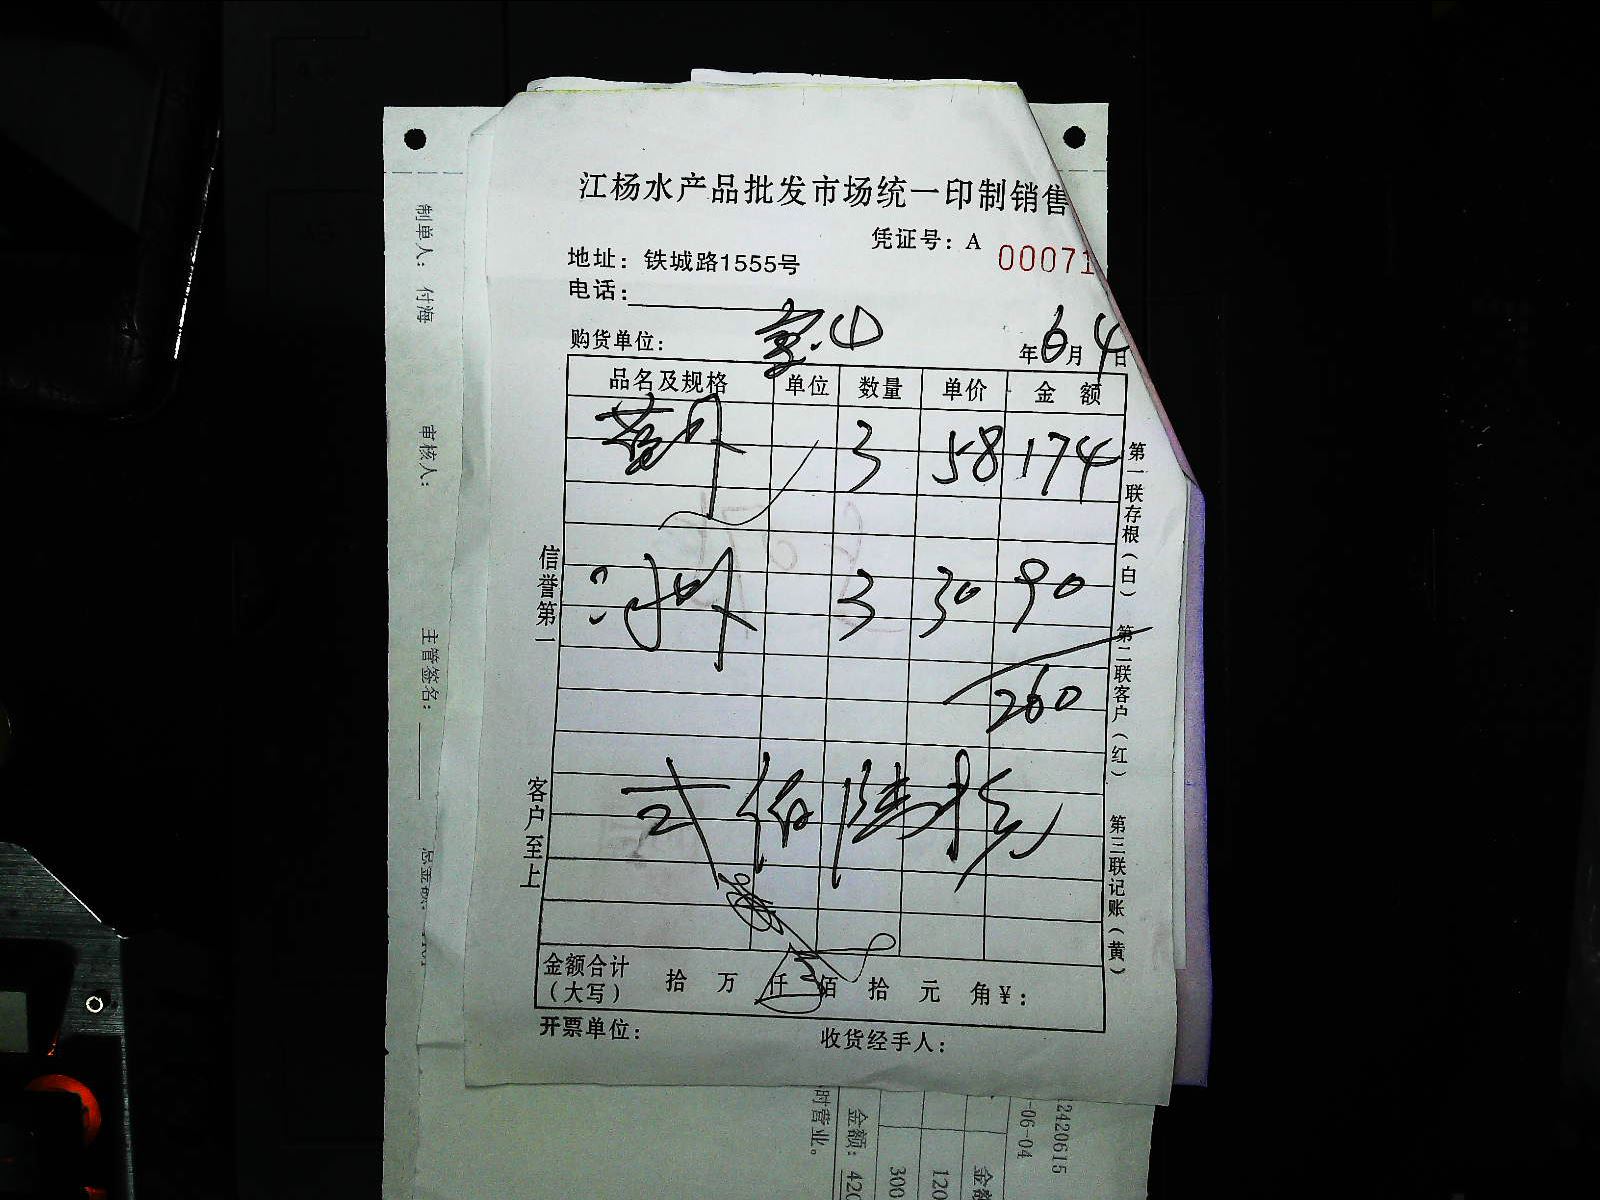 江杨水产品批发市场统一印制销售
凭证号：A 00071
地址：铁城路1555号
电话：
购货单位：宝山 年6月4日
品名及规格 单位 数量 单价 金额
3 58 174
3 30 90
260
弍佰陆拾元
金额合计（大写） 拾 万 仟 佰 拾 元 角 ¥：
开票单位： 收货经手人：
信誉第一
客户至上
第一联存根（白）
第二联客户（红）
第三联记账（黄）
制单人：付海
审核人：
主管签名：
时营业。
金额：420
300
120
金额
-06-04
2420615